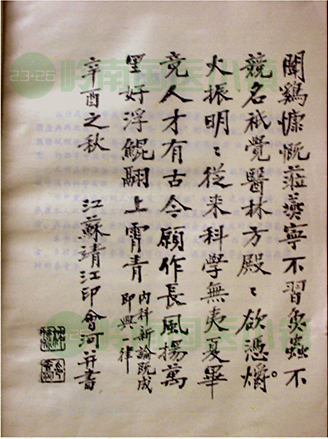 聞鷄慷慨蒞燕寧不習魚蟲不
競名祇覺醫林方殿〻欲憑爝
火振明〻從来科學無夷夏畢
竟人才有古今願作長風揚萬
里好浮鯤翮上霄青
内科新論既成
即興一律
辛酉之秋 江蘇靖江印會河并書
23-26